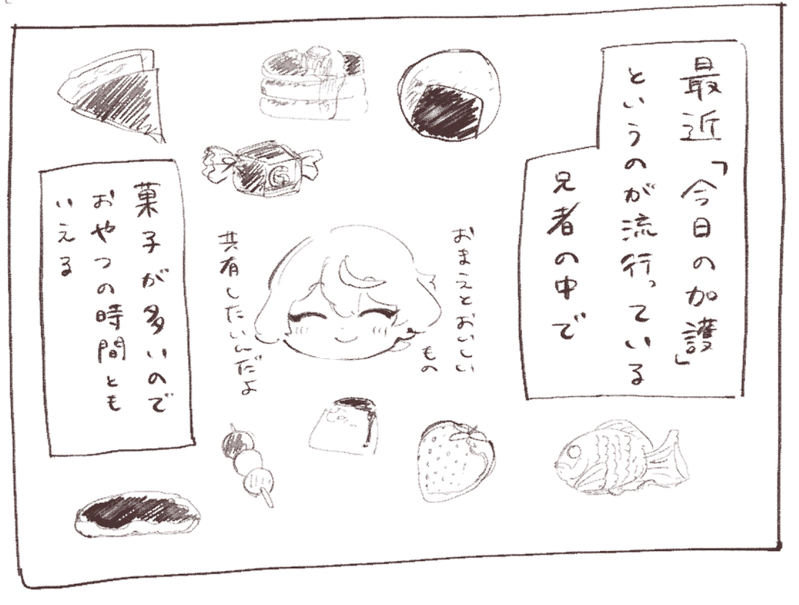 最近「今日の加護」
というのが流行っている
兄者の中で
おまえとおいしい
もの
共有したいんだよ
菓子が多いので
おやつの時間とも
いえる